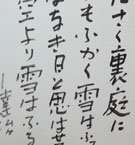 さく裏庭に
もふかく雪はふ
なき日と思は
より雪はふる